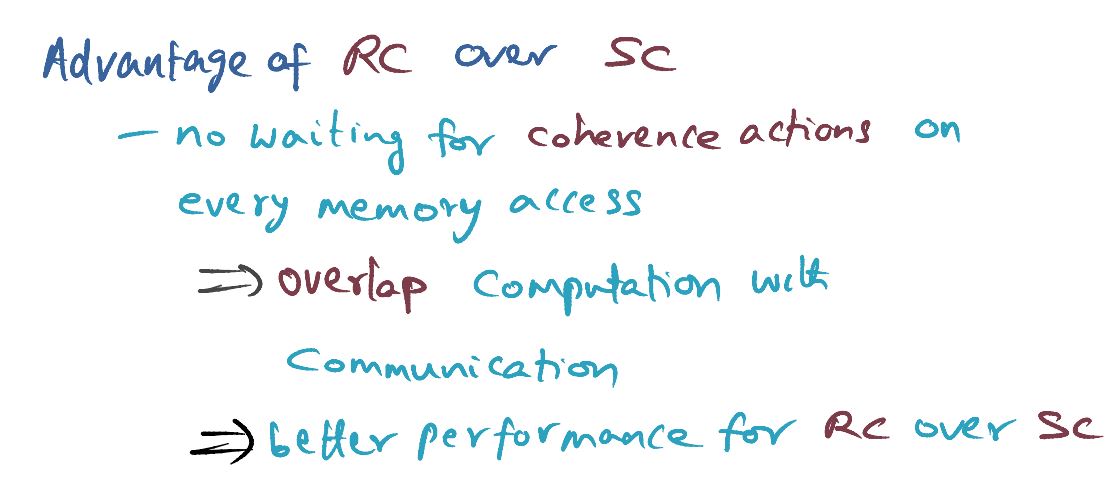 Advantage of RC over SC
— no waiting for coherence actions on
every memory access
⇒ overlap computation with
communication
⇒ better performance for RC over SC